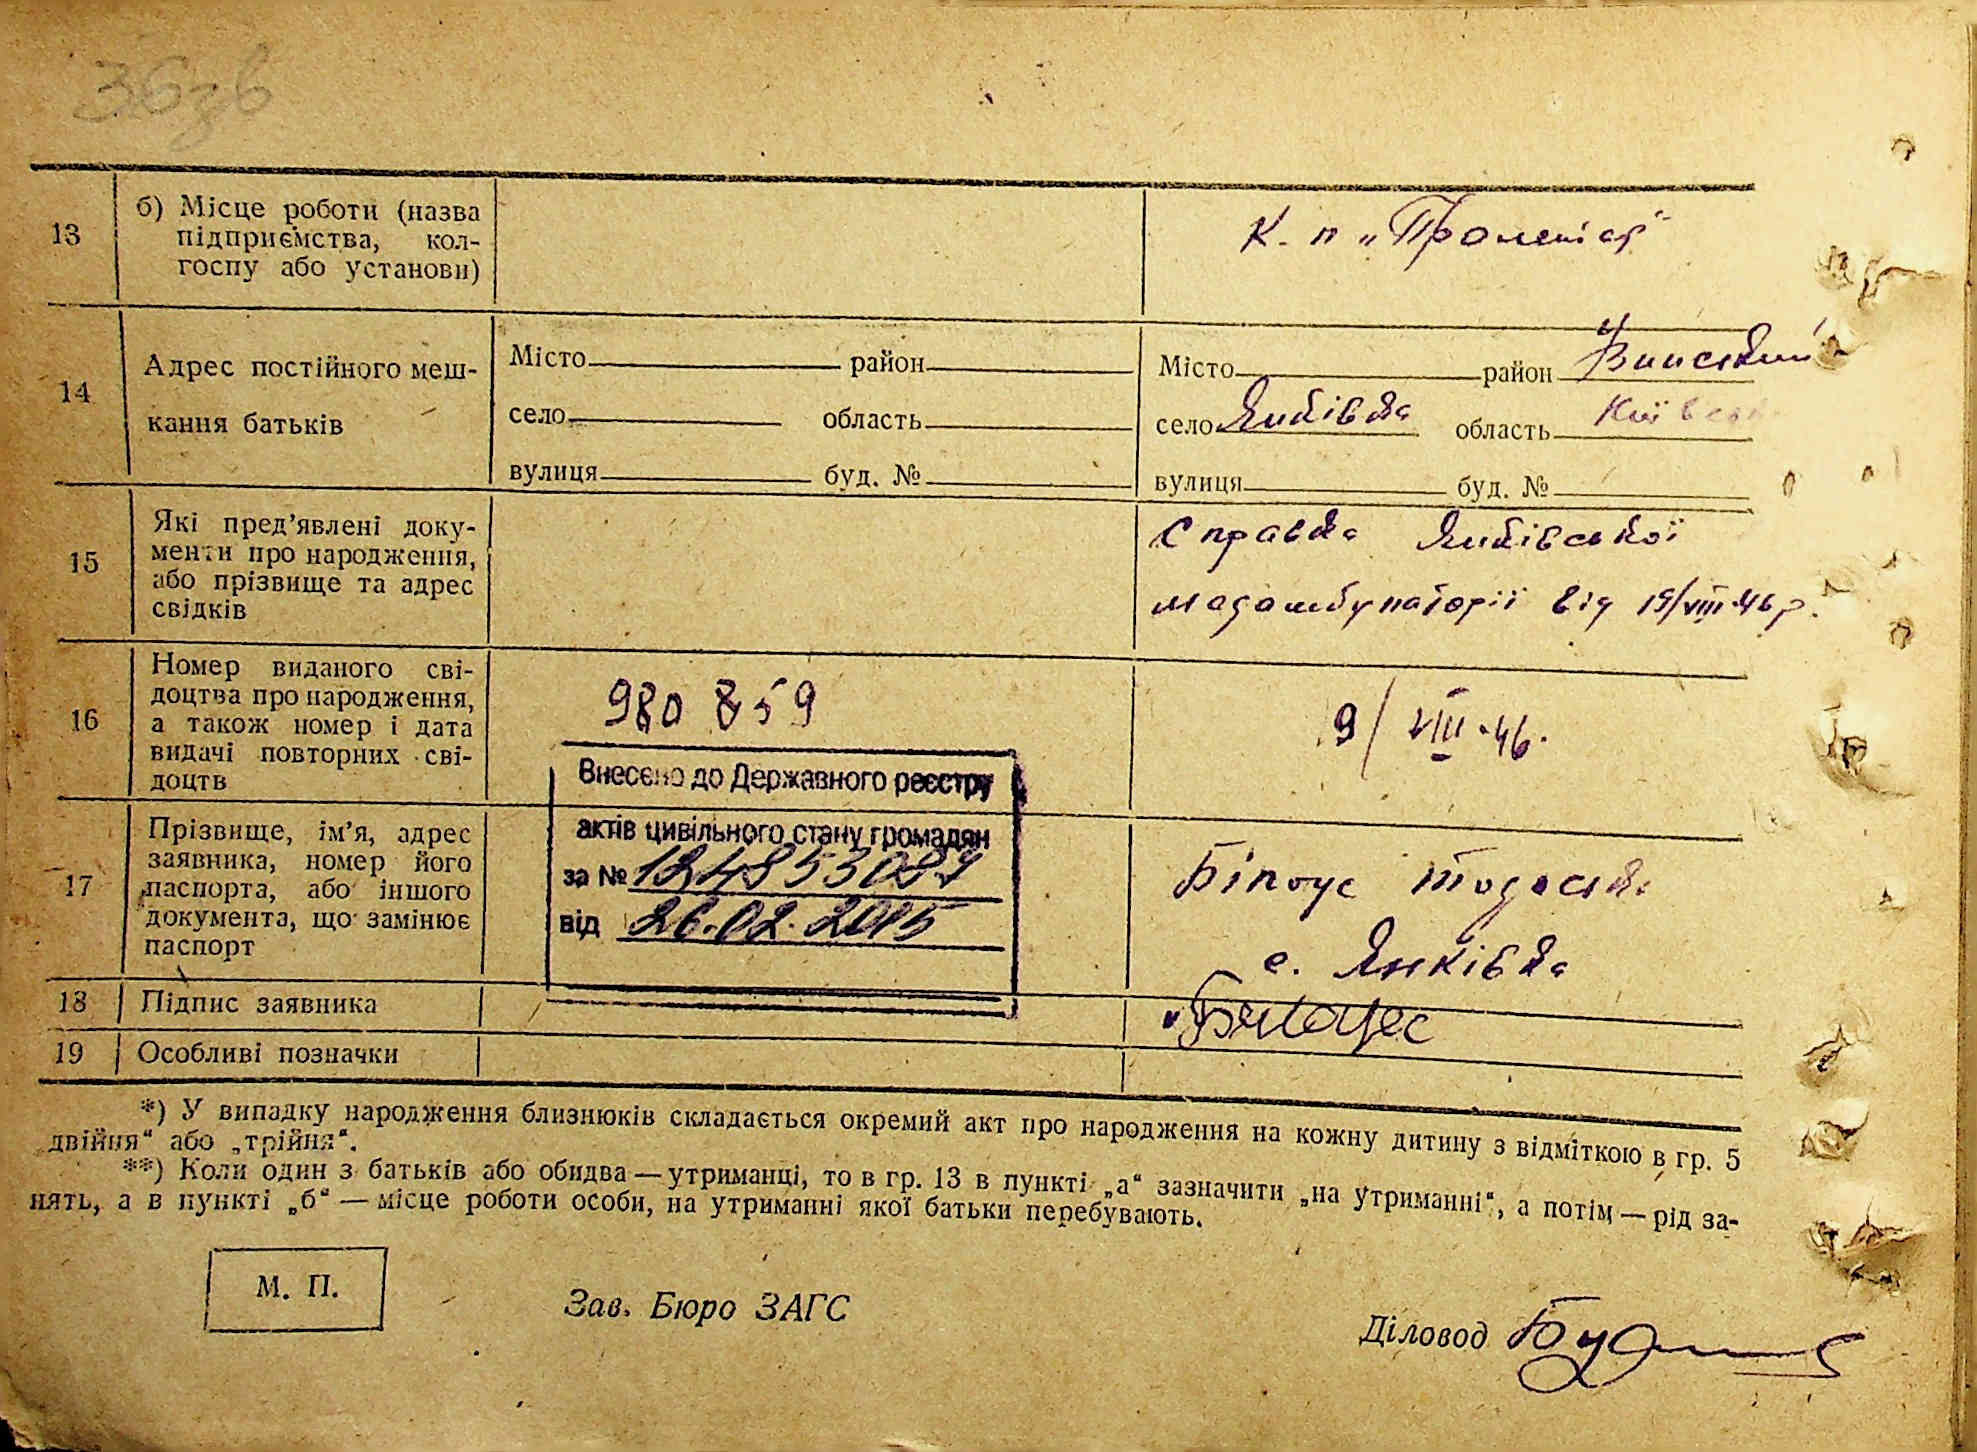 36зв
13
б) Місце роботи (назва
підприємства, кол-
госпу або установи)
К. п „Пролетар"
14
Адрес постійного меш-
кання батьків
Місто район
село область
вулиця буд. №
Місто район
село Янківка область Київськ
вулиця буд. №
15
Які пред’явлені доку-
менти про народження,
або прізвище та адрес
свідків
Справка Янківської
медамбулаторії від 19/VIII-46 р.
16
Номер виданого сві-
доцтва про народження,
а також номер і дата
видачі повторних сві-
доцтв
980859
9/VIII-46.
Внесено до Державного реєстру
актів цивільного стану громадян
за №
від 26.02.2015
17
Прізвище, ім’я, адрес
заявника, номер його
паспорта, або іншого
документа, що замінює
паспорт
Білоус Тодоска
с. Янківка
18
Підпис заявника
Білоус
19
Особливі позначки
*) У випадку народження близнюків складається окремий акт про народження на кожну дитину з відміткою в гр. 5
„двійня“ або „трійня“.
**) Коли один з батьків або обидва — утриманці, то в гр. 13 в пункті „а“ зазначити „на утриманні“, а потім — рід за-
нять, а в пункті „б“ — місце роботи особи, на утриманні якої батьки перебувають.
М. П.
Зав. Бюро ЗАГС
Діловод